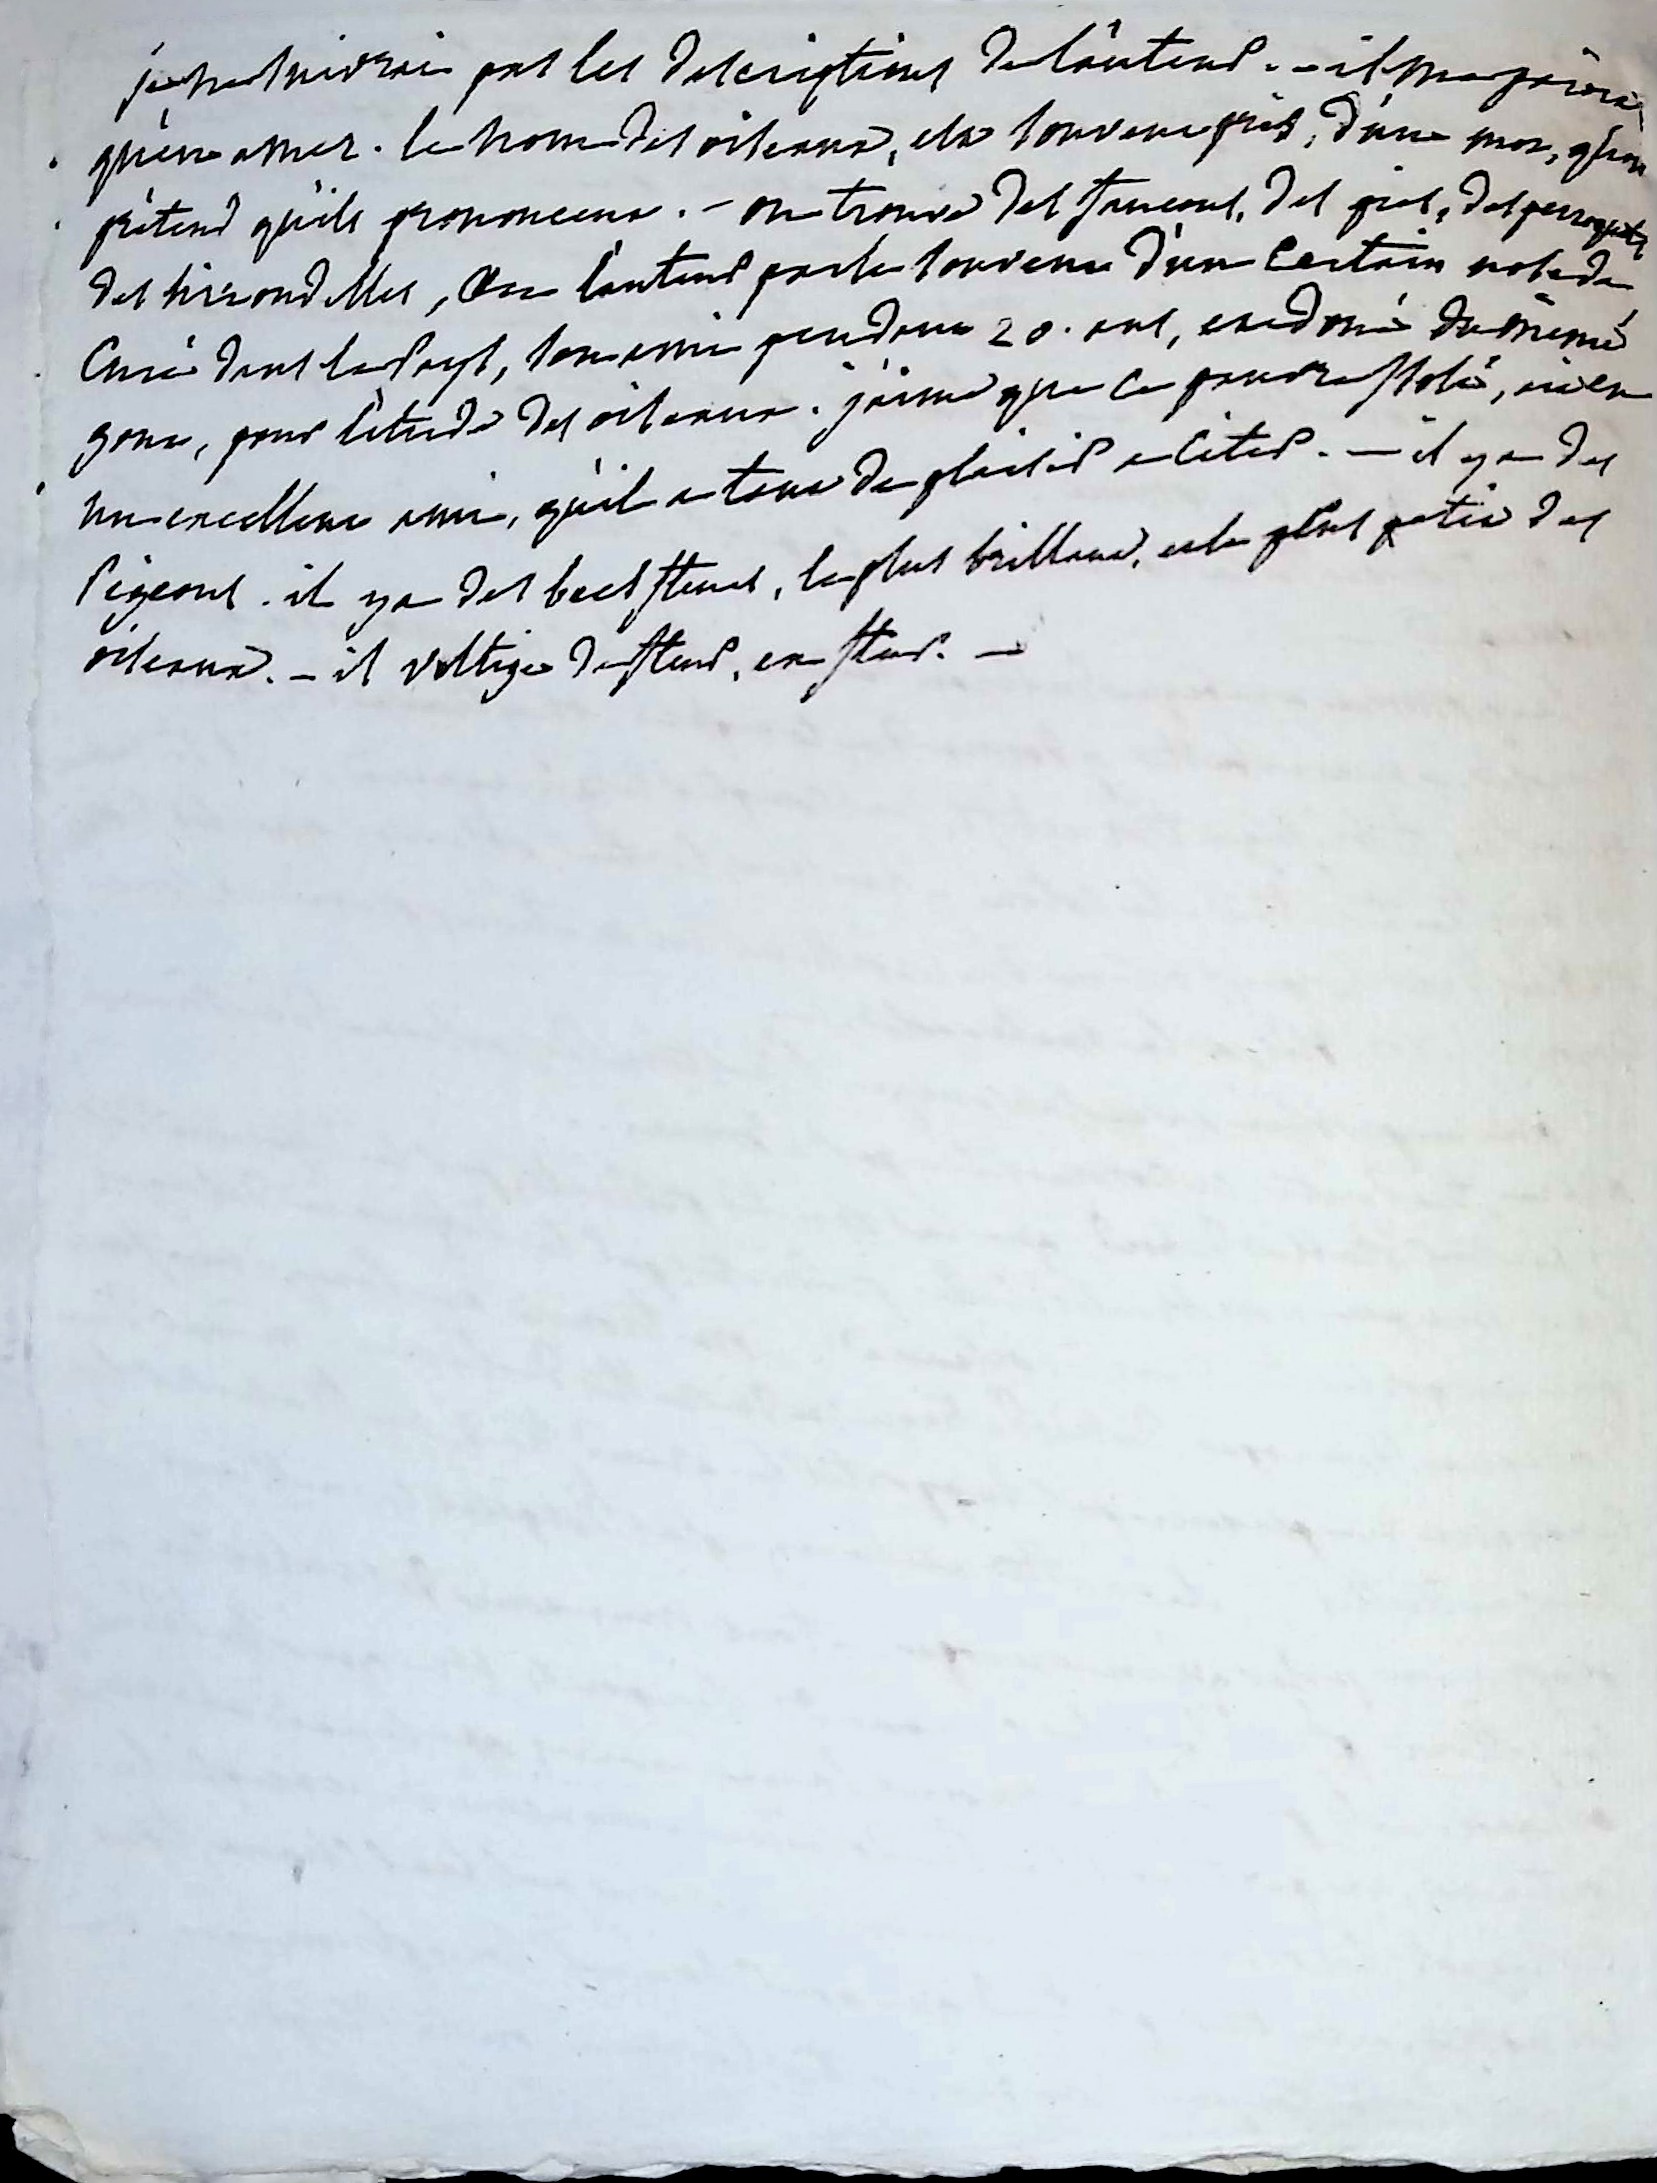 je ne suivrai pas les descriptions de l'auteur. - il me paroit
qu'en amer. le nom des oiseaux, est souvent pris, d'un mot, qu'on
prétend qu'ils prononcent. - on trouve des faucons, des pies, des perroquets
des hirondelles, l'auteur parle souvent d'un certain noseda
curé dans le pays, son ami pendant 20. ans, et doné du même
gout, pour l'étude des oiseaux. j'aime que ce pauvre exilé, ait eu
un excellent ami, qu'il a tant de plaisir a citer. - il y a des
Pigeons. il y a des becs fleurs, le plus brillant, et le plus petit des
oiseaux. - il voltige de fleur, en fleur. -